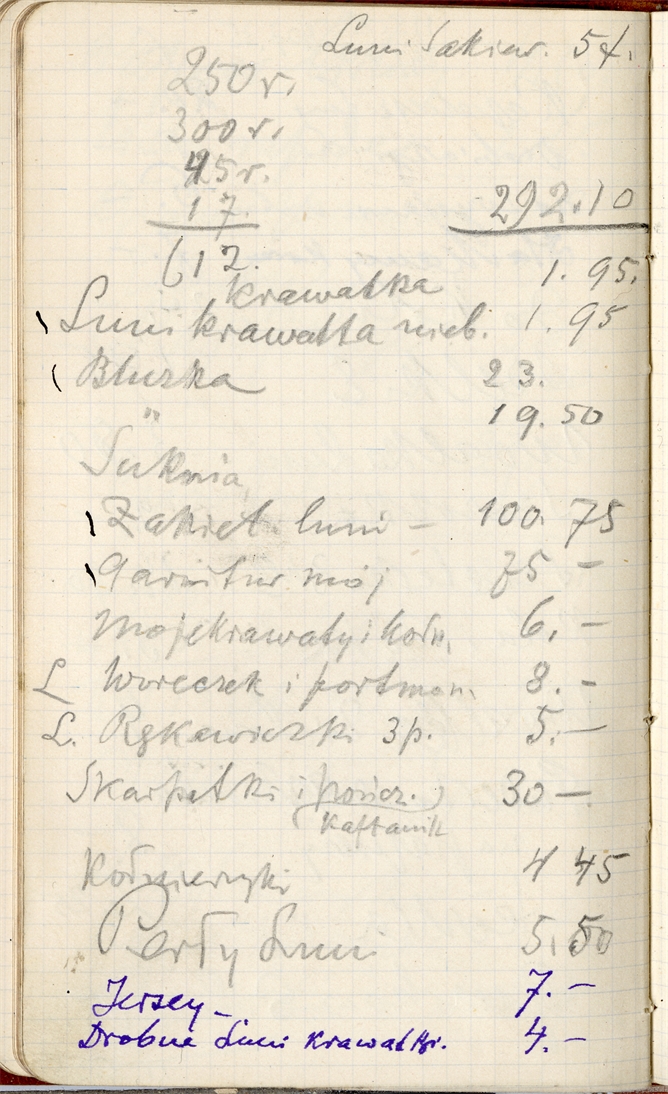 Luni Sakiew. 54.
250 r.
300 r.
45 r.
17.
292.10
612.
krawatka 1.95.
Luni krawatka nieb. 1.95
Bluzka 23.
" 19.50
Suknia
Żakiet luni – 100.75
Garnitur mój 75 –
Moje krawaty i kołn. 6. –
L Woreczek i portmon. 8. –
L. Rękawiczki 3 p. 5. –
Skarpetki i pończ. 30 –
Kaftanik
Kołnierzyki 4 45
Perły Luni 5.50
Jersey – 7. –
Drobne Luni krawatki. 4. –